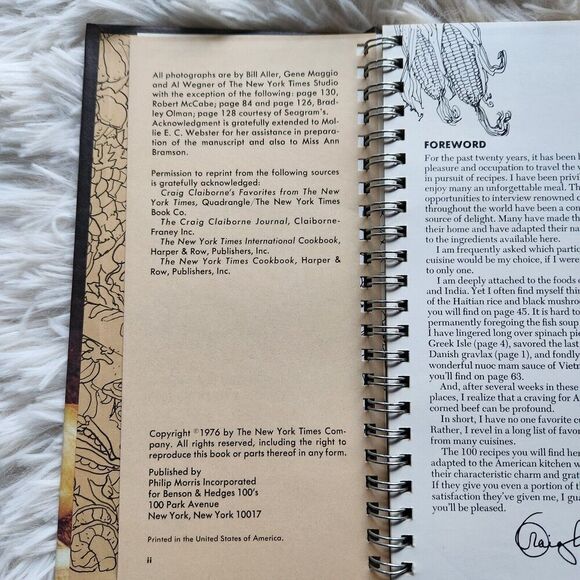 All photographs are by Bill Aller, Gene Maggio
and Al Wegner of The New York Times Studio
with the exception of the following: page 130,
Robert McCabe; page 84 and page 126, Brad-
ley Olman; page 128 courtesy of Seagram's.
Acknowledgment is gratefully extended to Mol-
lie E. C. Webster for her assistance in prepara-
tion of the manuscript and also to Miss Ann
Bramson.
Permission to reprint from the following sources
is gratefully acknowledged:
Craig Claiborne's Favorites from The New
York Times, Quadrangle/The New York Times
Book Co.
The Craig Claiborne Journal, Claiborne-
Franey Inc.
The New York Times International Cookbook,
Harper & Row, Publishers, Inc.
The New York Times Cookbook, Harper &
Row, Publishers, Inc.
Copyright ©1976 by The New York Times Com-
pany. All rights reserved, including the right to
reproduce this book or parts thereof in any form.
Published by
Philip Morris Incorporated
for Benson & Hedges 100's
100 Park Avenue
New York, New York 10017
Printed in the United States of America.
ii
FOREWORD
For the past twenty years, it has been
pleasure and occupation to travel the
in pursuit of recipes. I have been
enjoy many an unforgettable meal.
opportunities to interview renowned
throughout the world have been a
source of delight. Many have made
their home and have adapted their
to the ingredients available here.
I am frequently asked which
cuisine would be my choice, if I were
to only one.
I am deeply attached to the foods
and India. Yet I often find myself
of the Haitian rice and black
you will find on page 45. It is hard to
permanently foregoing the fish soup
I have lingered long over spinach
Greek Isle (page 4), savored the last
Danish gravlax (page 1), and fondly
wonderful nuoc mam sauce of
you'll find on page 63.
And, after several weeks in these
places, I realize that a craving for
corned beef can be profound.
In short, I have no one favorite
Rather, I revel in a long list of
from many cuisines.
The 100 recipes you will find
adapted to the American kitchen
their characteristic charm and
If they give you even a portion of the
satisfaction they've given me, I
you'll be pleased.
Craig